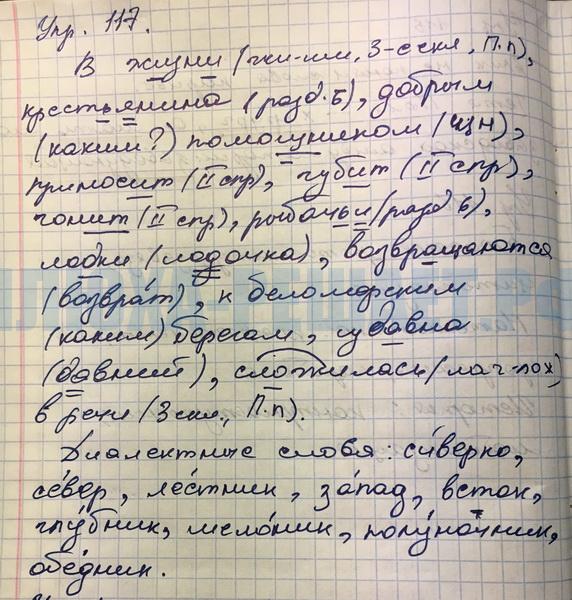 Упр. 117.
В жизни (жи-ши, 3-е скл, П.п),
крестьянина (разд. Б), добрым
(каким?) помощником (ЩН),
приносит (II спр), губит (II спр),
гонит (II спр), рыбачьи (разд Ь),
лодки (лодочка), возвращаются
(возврат), к беломорским
(каким) берегам, издавна
(давний), сложилась (лаг-лож)
в речи (3 скл., П.п).
Диалектные слова: си́верко,
се́вер, ле́тник, за́пад, восток,
глу́бник, шело́ник, полу́ночник,
обе́дник.